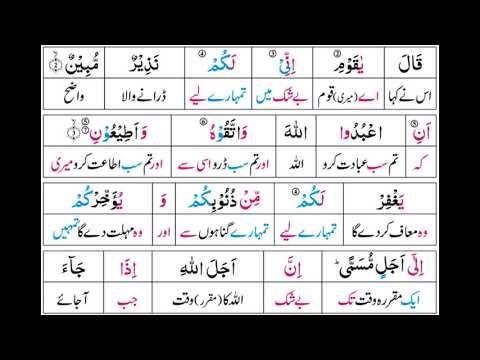 قَالَ يٰقَوْمِ ② اِنِّیْ ③ لَكُمْ ④ نَذِیْرٌ مُّبِیْنٌ ۙ②
اس نے کہا اے (میری) قوم بے شک میں تمہارے لیے ڈرانے والا واضح
اَنِ ⑤ اعْبُدُوا اللّٰهَ وَاتَّقُوْهُ ⑥ وَاَطِیْعُوْنِ ⑤⑦ ۙ③
کہ تم سب عبادت کرو اللہ اور تم سب ڈرو اسی سے اور تم سب اطاعت کرو میری
یَغْفِرْ لَكُمْ ④ مِّنْ ذُنُوْبِكُمْ وَ یُؤَخِّرْكُمْ
وہ معاف کر دے گا تمہارے لیے تمہارے گناہوں سے اور وہ مہلت دے گا تمہیں
اِلٰۤی اَجَلٍ مُّسَمًّی ؕ اِنَّ اَجَلَ اللّٰهِ اِذَا جَآءَ
ایک مقررہ وقت تک بے شک اللہ کا (مقرر) وقت جب آ جائے